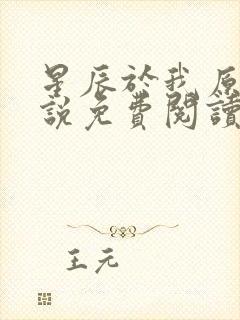 星辰於我原
說免費閱讀
王元